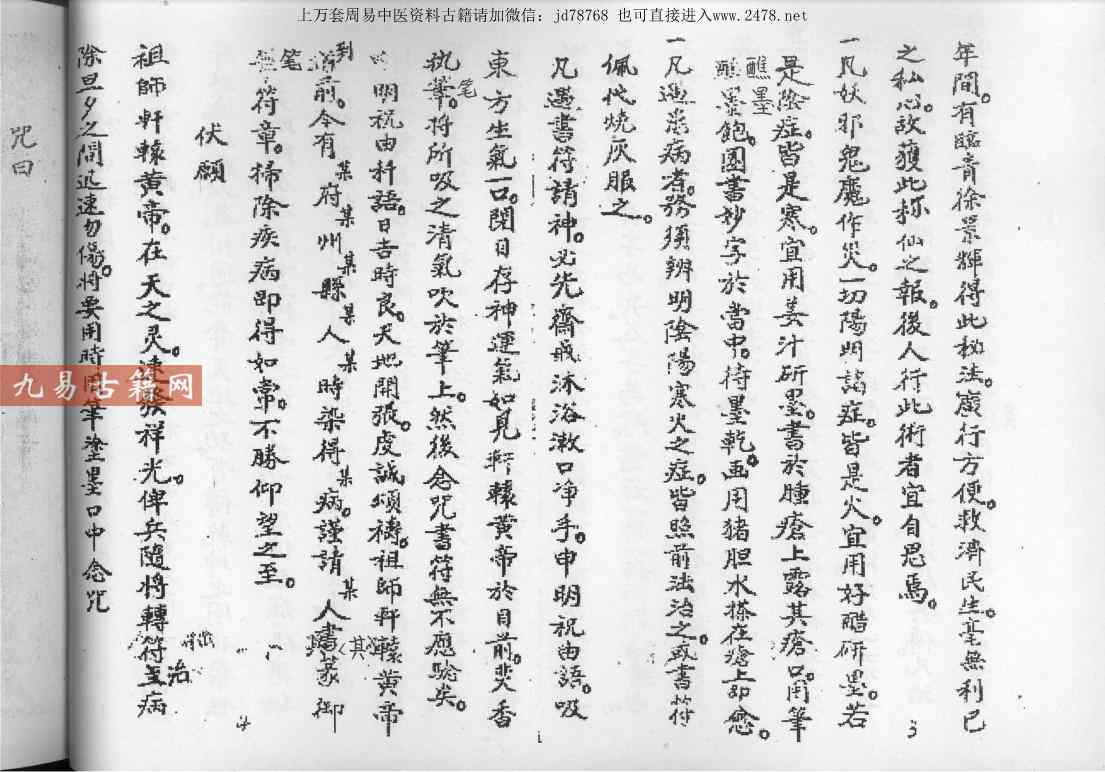 上万套周易中医资料古籍请加微信：jd78768 也可直接进入www.2478.net
年間。有臨青徐景輝得此秘法。廣行方便。救濟民生。毫無利己
之私心。故獲此称仙之報。後人行此術者宜自思焉。
一凡妖邪鬼魔作災。一切陽明謟症。皆是火。宜用好醋研墨。若
是陰症。皆是寒。宜用姜汁研墨。書於腫瘡上露其瘡口。用筆
蘸墨飽。圈書妙字於當中。待墨乾。画用猪胆水搽在瘡上即愈。
蘸墨
一凡遇患病者。務須辨明陰陽寒火之症。皆照前法治之。或書符
佩代燒灰服之。
凡遇書符請神。必先齋戒沐浴漱口净手。申明祝由語。吸
東方生氣一口。閉目存神運氣如見軒轅黄帝於目前。焚香
执筆。將所吸之清氣吹於筆上。然後念咒書符無不應驗矣。
笔
明祝由科語。日吉時良。天地開張。虔誠頌禱。祖師軒轅黄帝
到
前。今有某府某州某縣某人時染得某病。謹請某人書篆御
其
笔
符章。掃除疾病即得如常。不勝仰望之至。
伏願
祖師軒轅黄帝。在天之灵。速發祥光俾兵隨將轉符至病
治
除旦夕之間迅速勿傷。將要用時用筆塗墨口中念咒
咒曰
3
4
九易古籍网